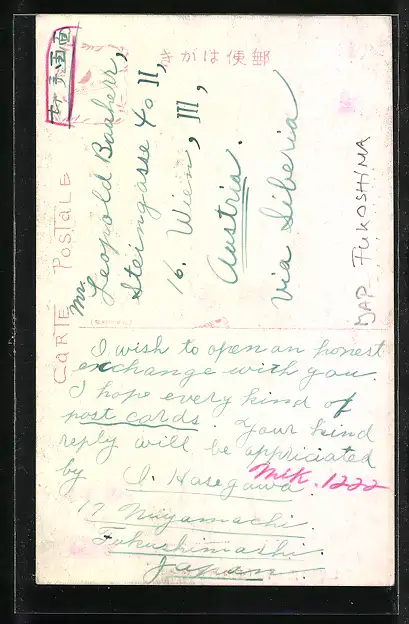 きがは便郵
CARTE POSTALE
Mr.
Leopold Bauherr,
Steingasse 40 II,
16. Wien, III,
Austria.
via Siberia
JAP FUKOSHIMA
I wish to open an honest
exchange with you.
I hope every kind of
post cards. Your kind
reply will be appriciated
by I. Hasegawa
Mlk. 1222
17 Miyamachi.
Fukushimashi.
Japan.